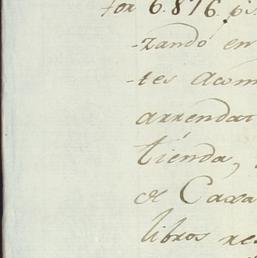 for 6.876. ps
-zando en
-tes acom
arrendar
tienda,
de Caxa
libros re